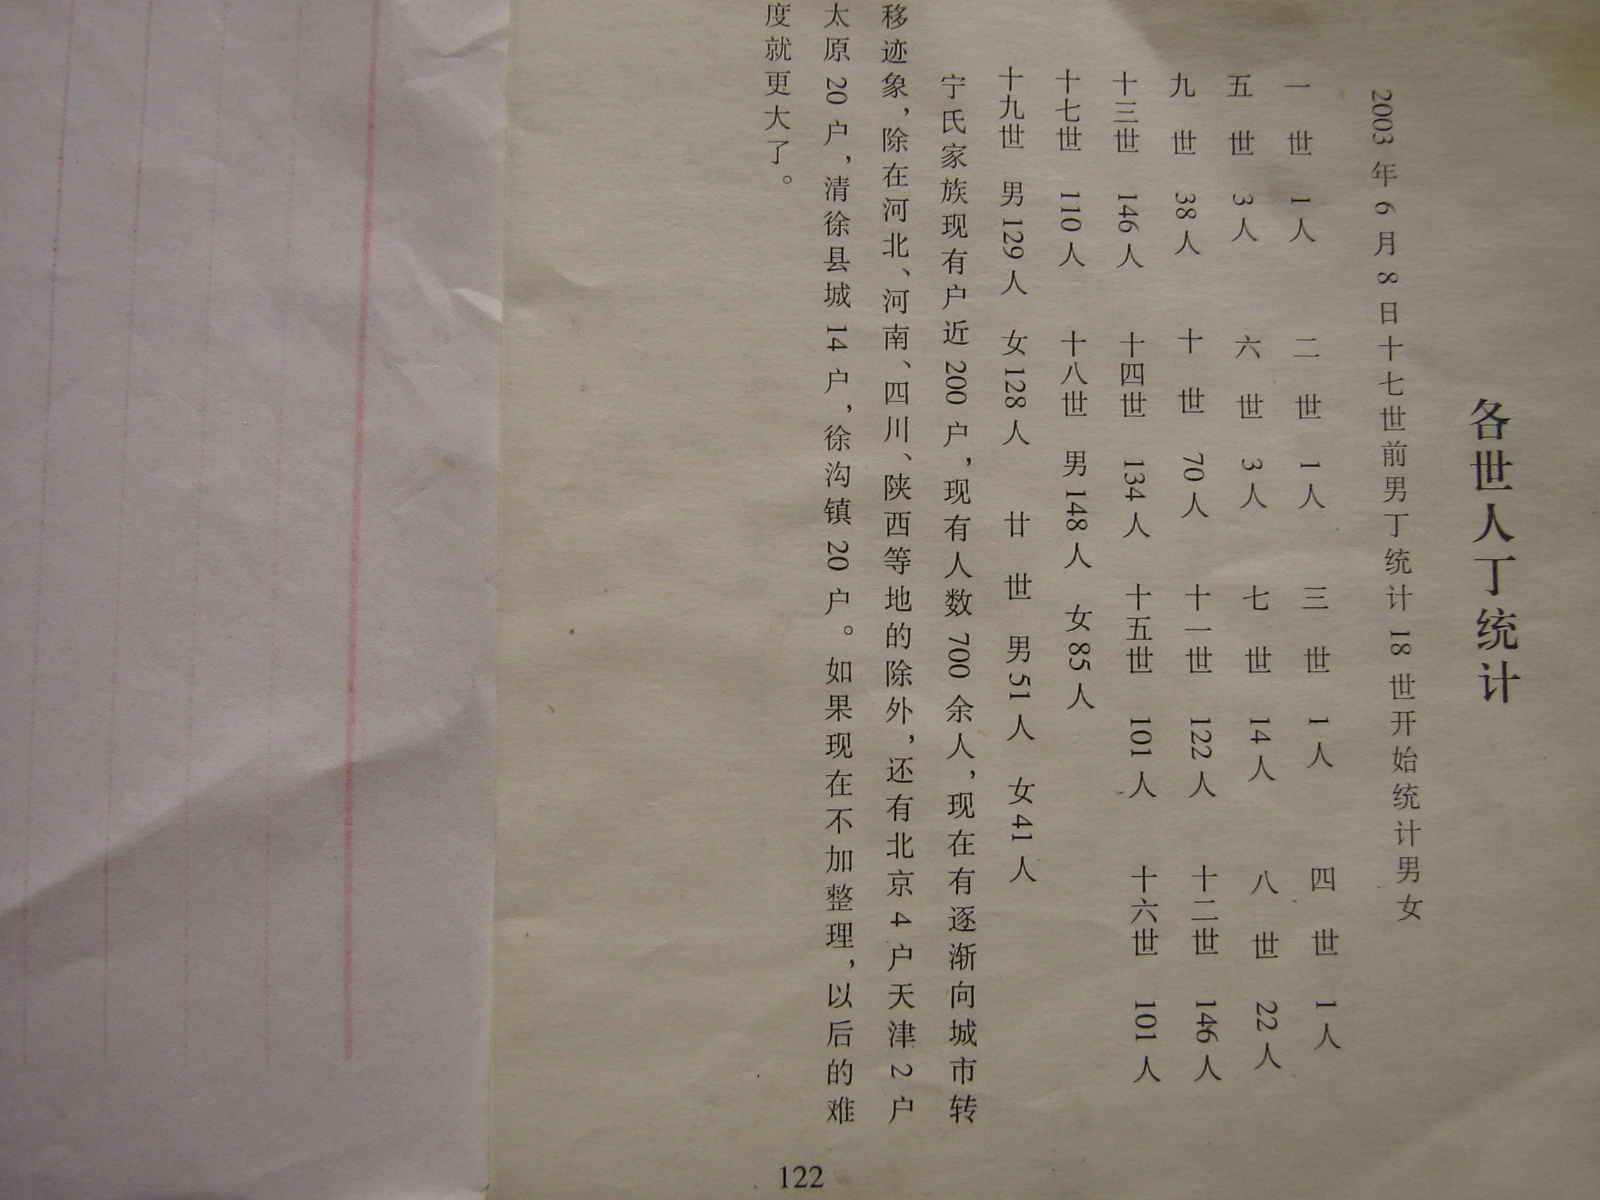 各世人丁统计
2003 年 6 月 8 日十七世前男丁统计 18 世开始统计男女
一 世 1 人 二 世 1 人 三 世 1 人 四 世 1 人
五 世 3 人 六 世 3 人 七 世 14 人 八 世 22 人
九 世 38 人 十 世 70 人 十一世 122 人 十二世 146 人
十三世 146 人 十四世 134 人 十五世 101 人 十六世 101 人
十七世 110 人 十八世 男 148 人 女 85 人
十九世 男 129 人 女 128 人 廿 世 男 51 人 女 41 人
宁氏家族现有户近 200 户，现有人数 700 余人，现在有逐渐向城市转
移迹象，除在河北、河南、四川、陕西等地的除外，还有北京 4 户天津 2 户
太原 20 户，清徐县城 14 户，徐沟镇 20 户。如果现在不加整理，以后的难
度就更大了。
122